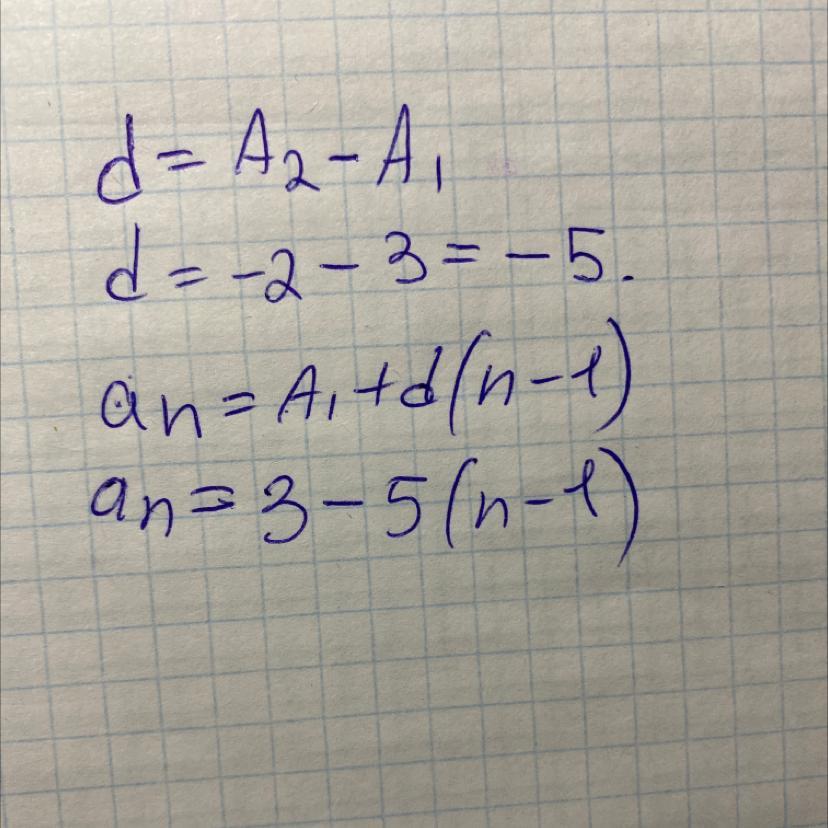 d = A₂ - A₁
d = -2 - 3 = -5.
aₙ = A₁ + d(n-1)
aₙ = 3 - 5(n-1)